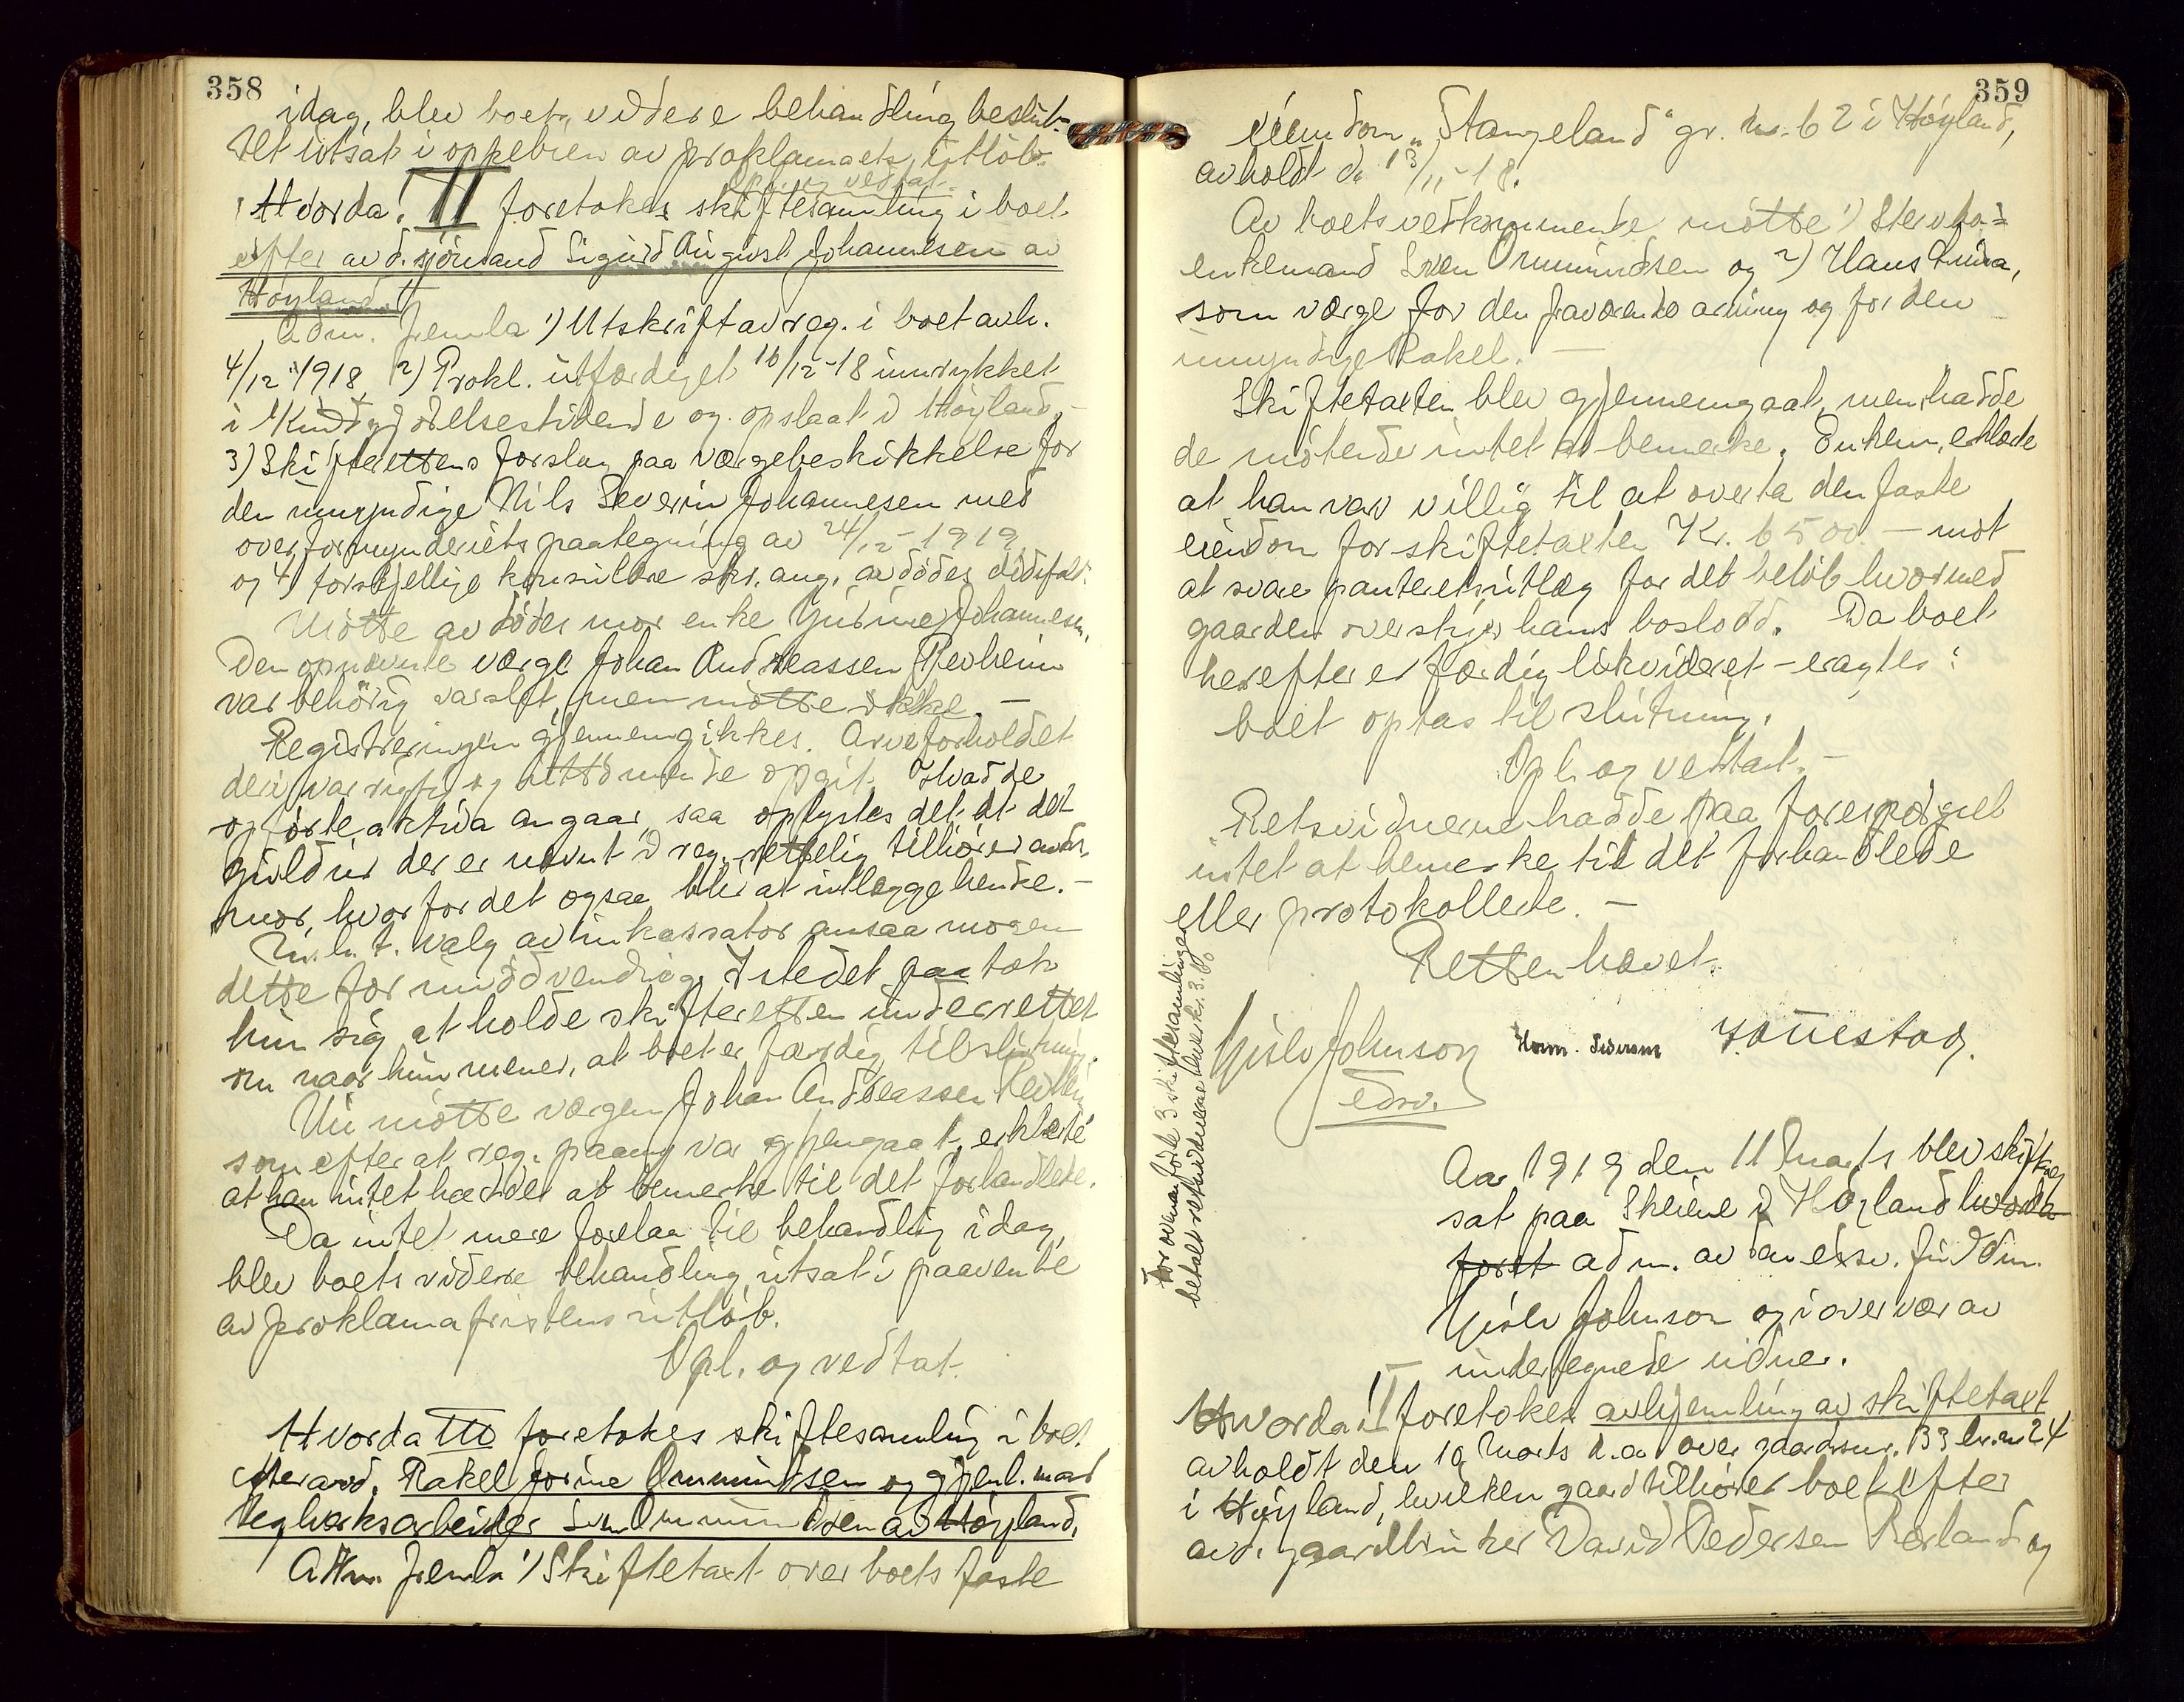 358
idag, blev boets videre behandling beslut-
tet utsat i oppebien av proklamaets utlöb.
Opl. og vedtat.
Hvorda: II foretokes skiftesamling i boet
efter avd. sjömand Sigurd August Johannesen av
Höyland.
Adm. fremla 1) Utskrift av reg. i boet avh.
4/12 1918, 2) Prokl. utfærdiget 16/12-18 innrykket
i Kundgjörelsestidende og opslaat i Höyland,-
3) Skifterettens forslag paa værgebeskikkelse for
den umyndige Nils Severin Johannesen med
overformynderiets paategning av 24/12-1919
og 4) forskjellige konsulære skr. ang. avdödes dödsfald.
Mötte avdödes mor enke Gurine Johannesen.
Den opnævnte værge Johan Andreassen Revheim
var behörig varslet, men mötte ikke. -
Registreringen gjennemgikkes. Arveforholdet
deri var rigtig og uttömmende opgit. Hvad de
opförte aktiva angaar, saa oplystes det at det
guldur der er nævnt i reg. rettelig tilhörer avdr.
mor, hvorfor det ogsaa blir at utlægge henne. -
M.h.t. valg av inkassator ansaa moren
dette for unödvendig. Istedet paatok
hun sig at holde skifteretten underrettet
om naar hun mener, at boet er færdig til slutning.
Nu mötte værgen Johan Andreassen Revheim
som efter at reg. paany var gjengaat, erklærte
at han intet hadde at bemerke til det forhandlede.
Da intet mere forelaa til behandling idag,
blev boets videre behandling utsat i paavente
av proklamafristens utlöb.
Opl. og vedtat.
Hvorda III foretokes skiftesamling i boet
efter avd. Rakel Jorine Ommundsen og gjenl. mand
teglverksarbeider Sven Ommundsen av Höyland.
Adm. fremla 1) Skiftetaxt over boets faste
359
eiendom "Stangeland" gr. nr. 62 i Höyland,
avholdt d. 13/11-18.
Av boets vedkommende mötte 1) Stervbo-
enkemand Sven Ommundsen og 2) Hans
som værge for den fraværende arving og for den
umyndige Rakel. -
Skiftetaxten blev gjennemgaat, men hadde
de mötende intet at bemerke. Enkem. erklærte
at han var villig til at overta den faste
eiendom for skiftetaxten Kr. 6500 - mot
at svare panteretsutlæg for det belöb hvormed
gaarden overstiger hans boslodd. Da boet
herefter er færdig likvideret - eragtes:
boet optas til slutning.
Opl. og vedtat. -
Retsvidnerne hadde paa forespörgsel
intet at bemerke til det forhandlede
eller protokollerte. -
Retten hævet.
Gisle Johnson
edsv.
For ovenanförte 3 skiftesamlinger
betalt retsvidnerne hver kr. 3.60
Aar 1919 den 11 marts blev skifteret
sat paa Skeiene i Höyland hvorda
foret adm. av den edsv. fuldm.
Gisle Johnson og i overvær av
undertegnede vidner.
Hvorda: I foretokes avhjemling av skiftetaxt
avholdt den 10 marts d.a. over gaardsnr. 33 br.nr 24
i Höyland, hvilken gaard tilhörer boet efter
avd. gaardbruker David Pedersen og